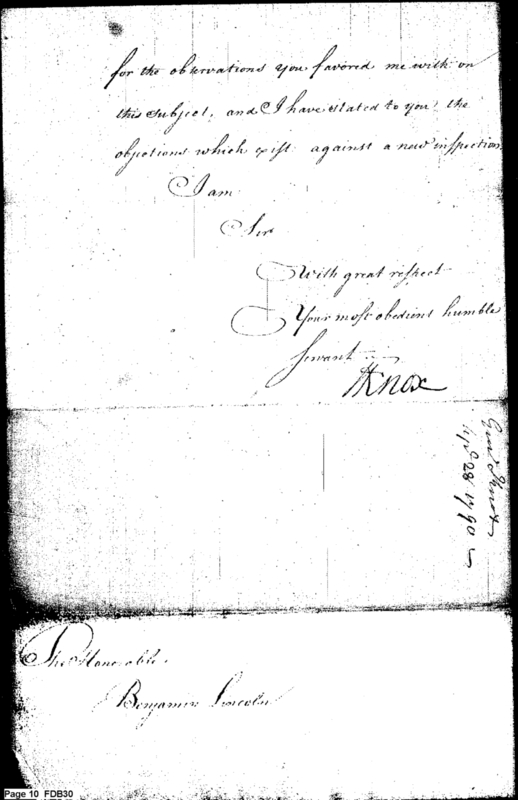 for the observations you favored me with on
this subject, and I have stated to you the
objections which exist against a new inspection
I am
Sir
With great respect
Your most obedient humble
servant
HKnox
Genl Knox
28 1790
The Honorable
Benjamin Lincoln
Page 10 FDB30